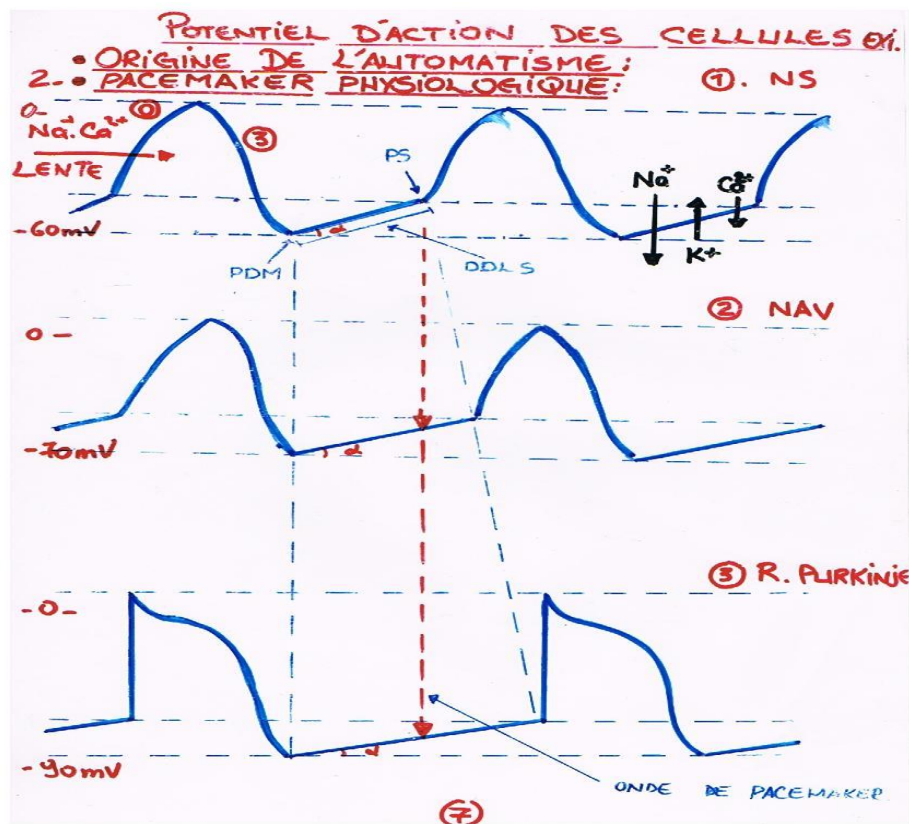 POTENTIEL D'ACTION DES CELLULES exi.
• ORIGINE DE L'AUTOMATISME :
2- • PACEMAKER PHYSIOLOGIQUE :
① . NS
0-
⓪
Na⁺. Ca²⁺
LENTE
③
PS
Na⁺
Ca²⁺
K+
-60mV
α
PDM
DDLS
② NAV
0 -
-70mV
α
③ R. PURKINJE
-0-
-90mV
α
ONDE DE PACEMAKER
⑦